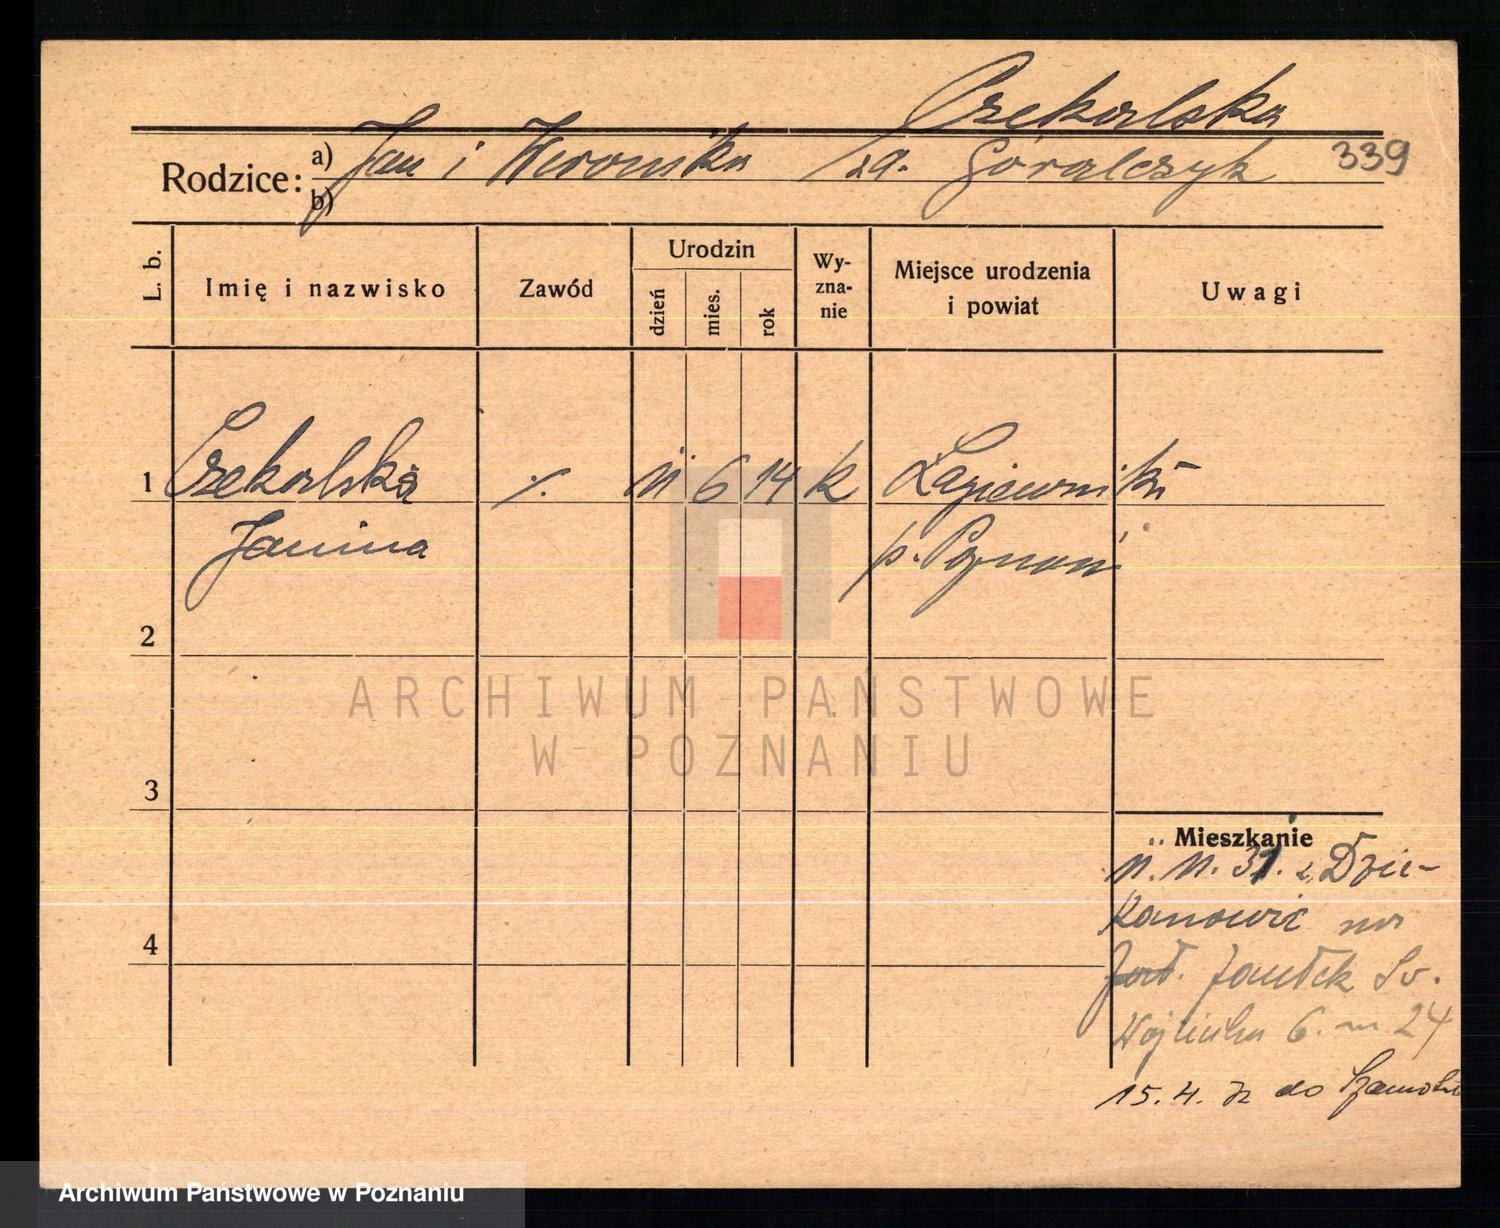 Czekalska
Rodzice: a) Jan i Weronika /za. Góralczyk 339
b)
L. b. Imię i nazwisko Zawód Urodzin dzień mies. rok Wy-zna-nie Miejsce urodzenia i powiat Uwagi
1 Czekalska ./. 11 6 14 k Łagiewniki
Janina p. Poznań
2
3
4
Mieszkanie
11. 11. 31. z Dzie-
kanowic na
Janełek Św.
Wojciecha 6. m 24
15. 4. 32 do
ARCHIWUM PAŃSTWOWE
W POZNANIU
Archiwum Państwowe w Poznaniu